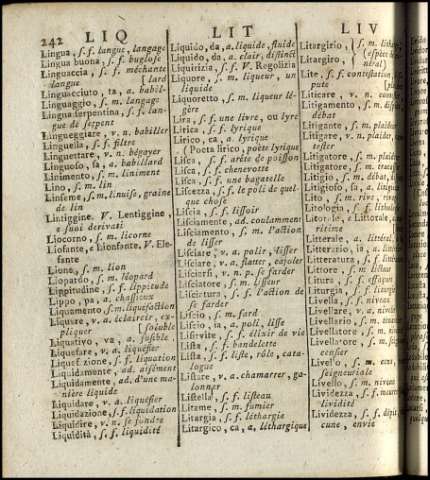 242 LIQ LIT LIV
Lingua, s. f. langue, langage
Lingua buona, s. f. buglose
Linguaccia, s. f. méchante
langue [lard
Linguacciuto, ta, a. babil-
Linguaggio, s. m. langage
Lingua serpentina, s. f. lan-
gue de serpent
Lingueggiare, v. n. babiller
Linguella, s. f. filtre
Linguettare, v. n. bégayer
Linguoso, sa, a. babillard
Linimento, s. m. liniment
Lino, s. m. lin
Linseme, s. m. linuise, graine
de lin
Lintiggine. V. Lentiggine,
e suoi derivati
Liocorno, s. m. licorne
Liofante, e Lionfante, V. Ele-
fante
Lione, s. m. lion
Liopardo, s. m. léopard
Lippitudine, s. f. lippitude
Lippo, pa, a. chassieux
Liquamento, s. m. liquefaction
Liquare, v. a. éclaircir, ex-
pliquer [soluble
Liquativo, va, a. fusible,
Liquefare, v. a. liquefier
Liquefazione, s. f. liquation
Liquidamente, ad. aisément
Liquidamente, ad. d'une ma-
nière liquide
Liquidare, v. a. liquefier
Liquidazione, s. f. liquidation
Liquidire, v. n. se fondre
Liquidità, s. f. liquidité
Liquido, da, a. liquide, fluide
Liquido, da, a. clair, distinct
Liquirizia, s. f. V. Regolizia
Liquore, s. m. liqueur, un
liquide
Liquoretto, s. m. liqueur lé-
gère
Lira, s. f. une livre, ou lyre
Lirica, s. f. lyrique
Lirico, ca, a. lyrique
(Poeta lirico, poëte lyrique
Lisca, s. f. arête de poisson
Lisca, s. f. chenevotte
Lisca, s. f. une bagatelle
Liscezza, s. f. le poli de quel-
que chose
Liscia, s. f. lissoir
Lisciamente, ad. coulamment
Lisciamento, s. m. l'action
de lisser
Lisciare, v. a. polir, lisser
Lisciare, v. a. flatter, cajoler
Lisciarsi, v. n. p. se farder
Lisciatore, s. m. lisseur
Lisciatura, s. f. l'action de
se farder
Liscio, s. m. fard
Liscio, ia, a. poli, lisse
Lisirvite, s. f. élixir de vie
Lista, s. f. bandelette
Lista, s. f. liste, rôle, cata-
logue
Listare, v. a. chamarrer, ga-
lonner
Listella, s. f. listeau
Litame, s. m. fumier
Litargia, s. f. léthargie
Litargico, ca, a. léthargique
Litargirio, s. m.
Litargiro, (espèce
néral)
Lite, s. f. contestation,
pute
Liticare, v. n.
Litigamento, s. m.
débat
Litigante, s. m. plaideur
Litigare, v. n. plaider,
tester
Litigatore, s. m.
Litigio, s. m. débat,
Litigioso, sa, a.
Lito, s. m. rive,
Litologia, s. f.
Littorale, a.
ritime
Litterale, a. littéral,
Litteratura, s. f.
Littore, s. m. licteur
Litura, s. f.
Livella, s. f. niveau
Livellare, v. a. niveler
Livellare, v. n.
Livellatore, s. m.
censier
Livello, s. m.
seigneuriale
Livello, s. m. niveau
Lividezza, s. f.
lividité
Lividezza, s. f.
cune, envie